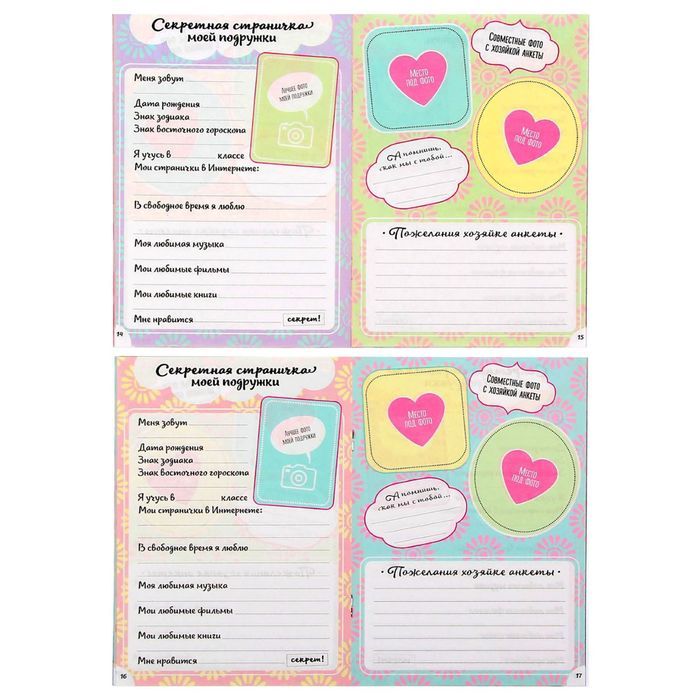 Секретная страничка
моей подружки
Меня зовут
Дата рождения
Знак зодиака
Знак восточного гороскопа
Лучшее фото
моей подружки
Я учусь в классе
Мои странички в Интернете:
В свободное время я люблю
Моя любимая музыка
Мои любимые фильмы
Мои любимые книги
Мне нравится секрет!
14
Место
под фото
Совместные фото
с хозяйкой анкеты
Место
под фото
А помнишь,
как мы с тобой...
· Пожелания хозяйке анкеты ·
15
Секретная страничка
моей подружки
Меня зовут
Дата рождения
Знак зодиака
Знак восточного гороскопа
Лучшее фото
моей подружки
Я учусь в классе
Мои странички в Интернете:
В свободное время я люблю
Моя любимая музыка
Мои любимые фильмы
Мои любимые книги
Мне нравится секрет!
16
Место
под фото
Совместные фото
с хозяйкой анкеты
Место
под фото
А помнишь,
как мы с тобой...
· Пожелания хозяйке анкеты ·
17